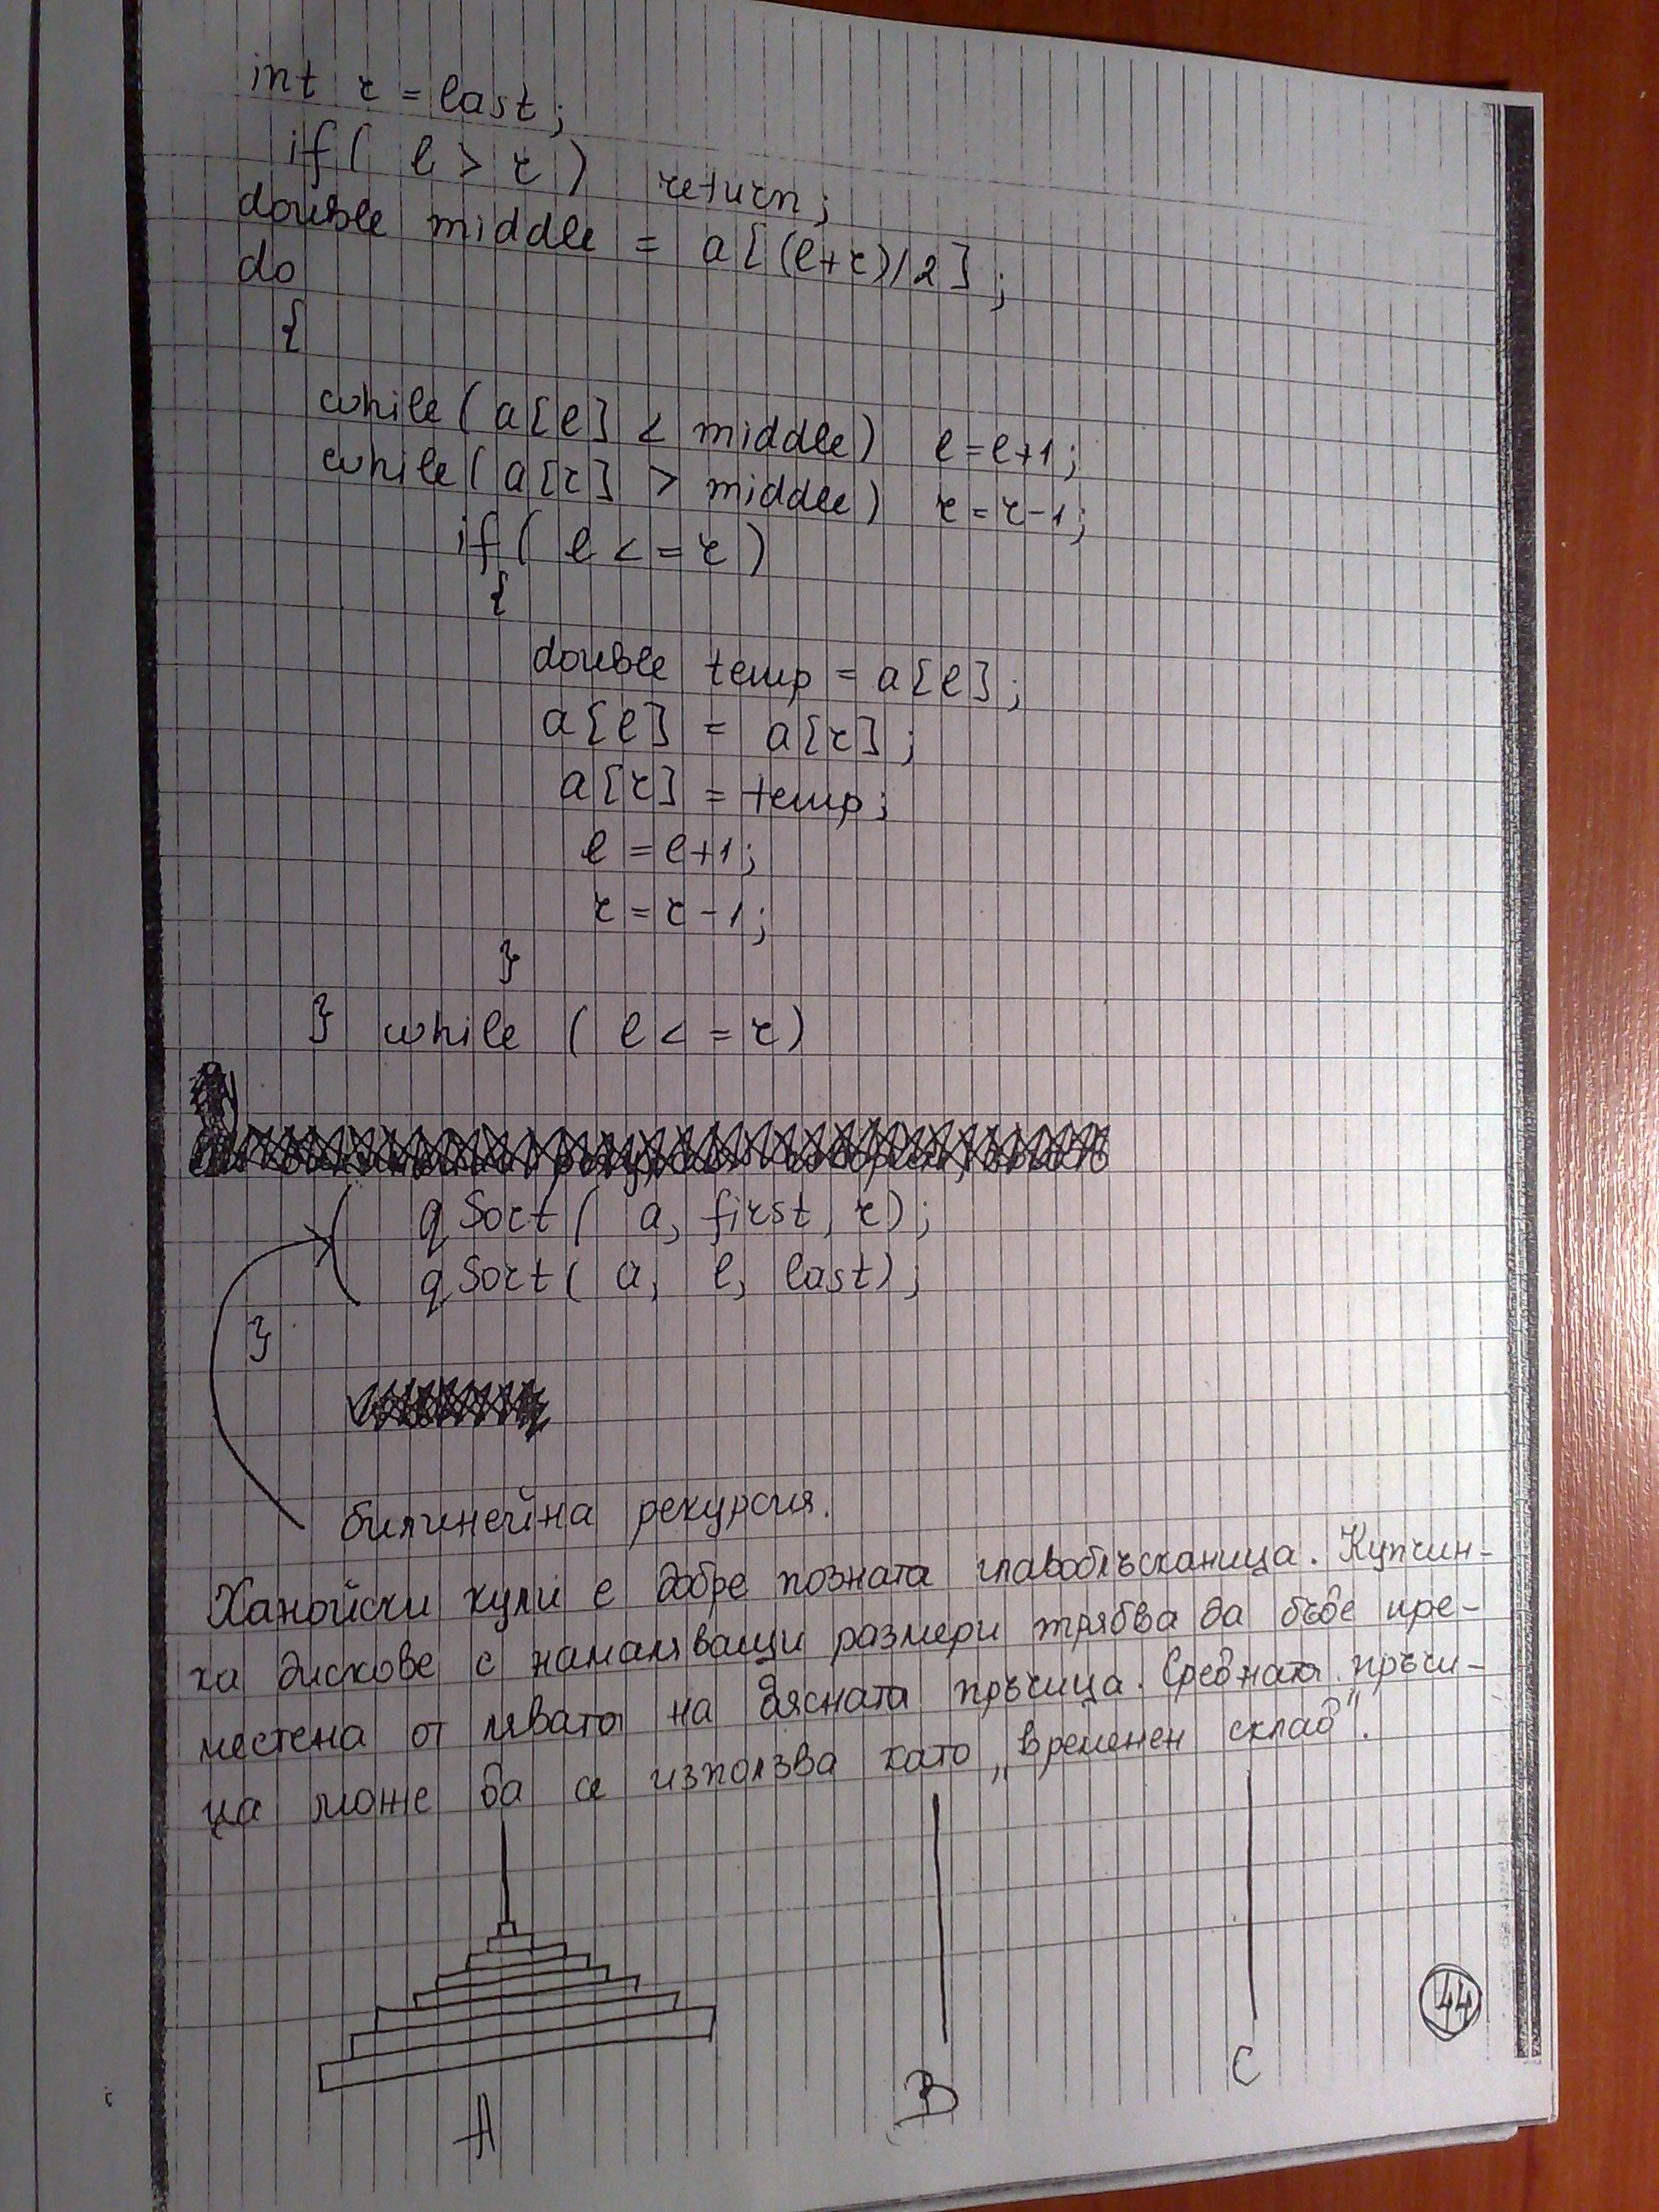 int r = last;
if( l > r ) return;
double middle = a[(l+r)/2];
do
{
while(a[l] < middle) l=l+1;
while(a[r] > middle) r=r-1;
if( l <= r )
{
double temp = a[l];
a[l] = a[r];
a[r] = temp;
l = l+1;
r = r-1;
}
} while ( l <= r )
qSort( a, first, r);
qSort( a, l, last);
}
билинейна рекурсия.
Ханойски кули е добре позната главоблъсканица. Купчин-
ка дискове с намаляващи размери трябва да бъде пре-
местена от лявата на дясната пръчица. Средната пръчи-
ца може да се използва като „временен склад".
A B C
44